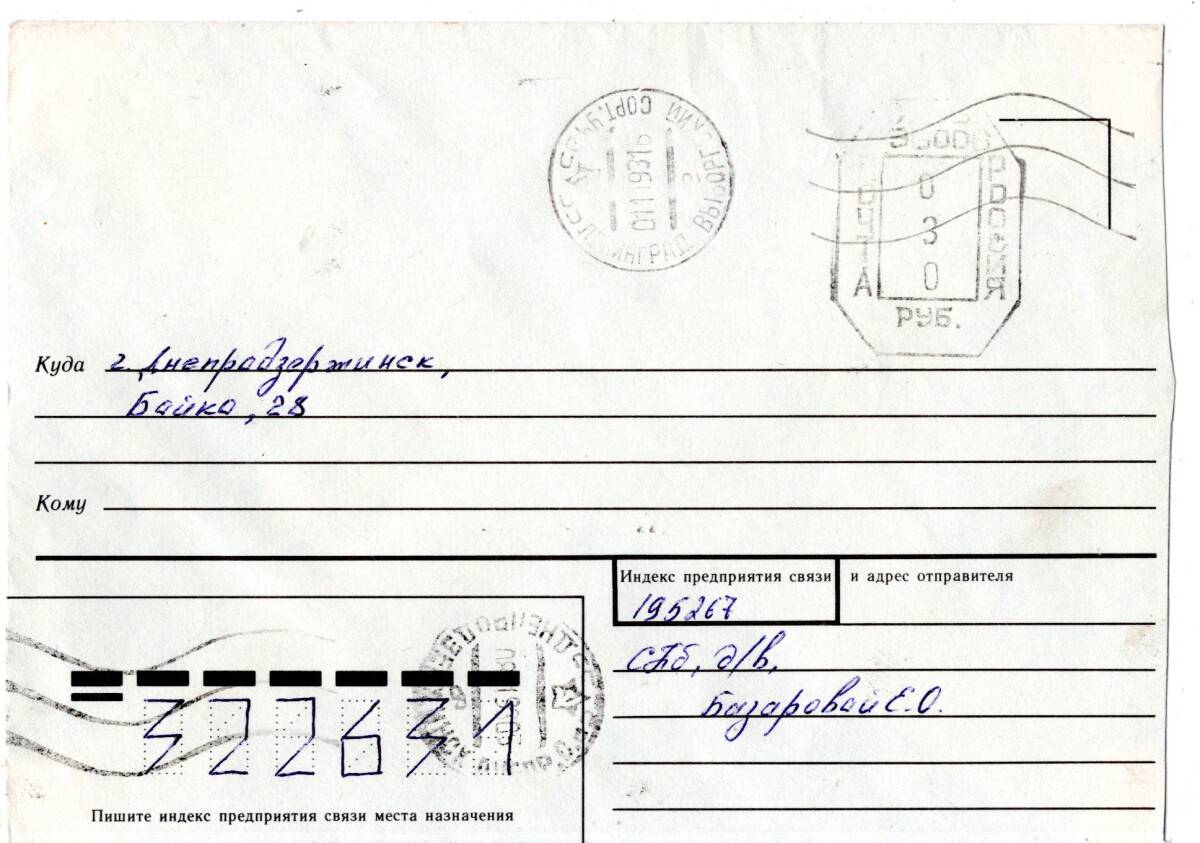 СССР ЛЕНИНГРАД ВЫБОРГСКИЙ СОРТ. УЧ.
01119316
2
ПОЧТА
РОССИЯ
0
3
0
РУБ.
Куда г. Днепрадзержинск,
Байка, 28
Кому
Индекс предприятия связи и адрес отправителя
195267
СПб, д/в,
Базаровай Е.О.
322631
Пишите индекс предприятия связи места назначения